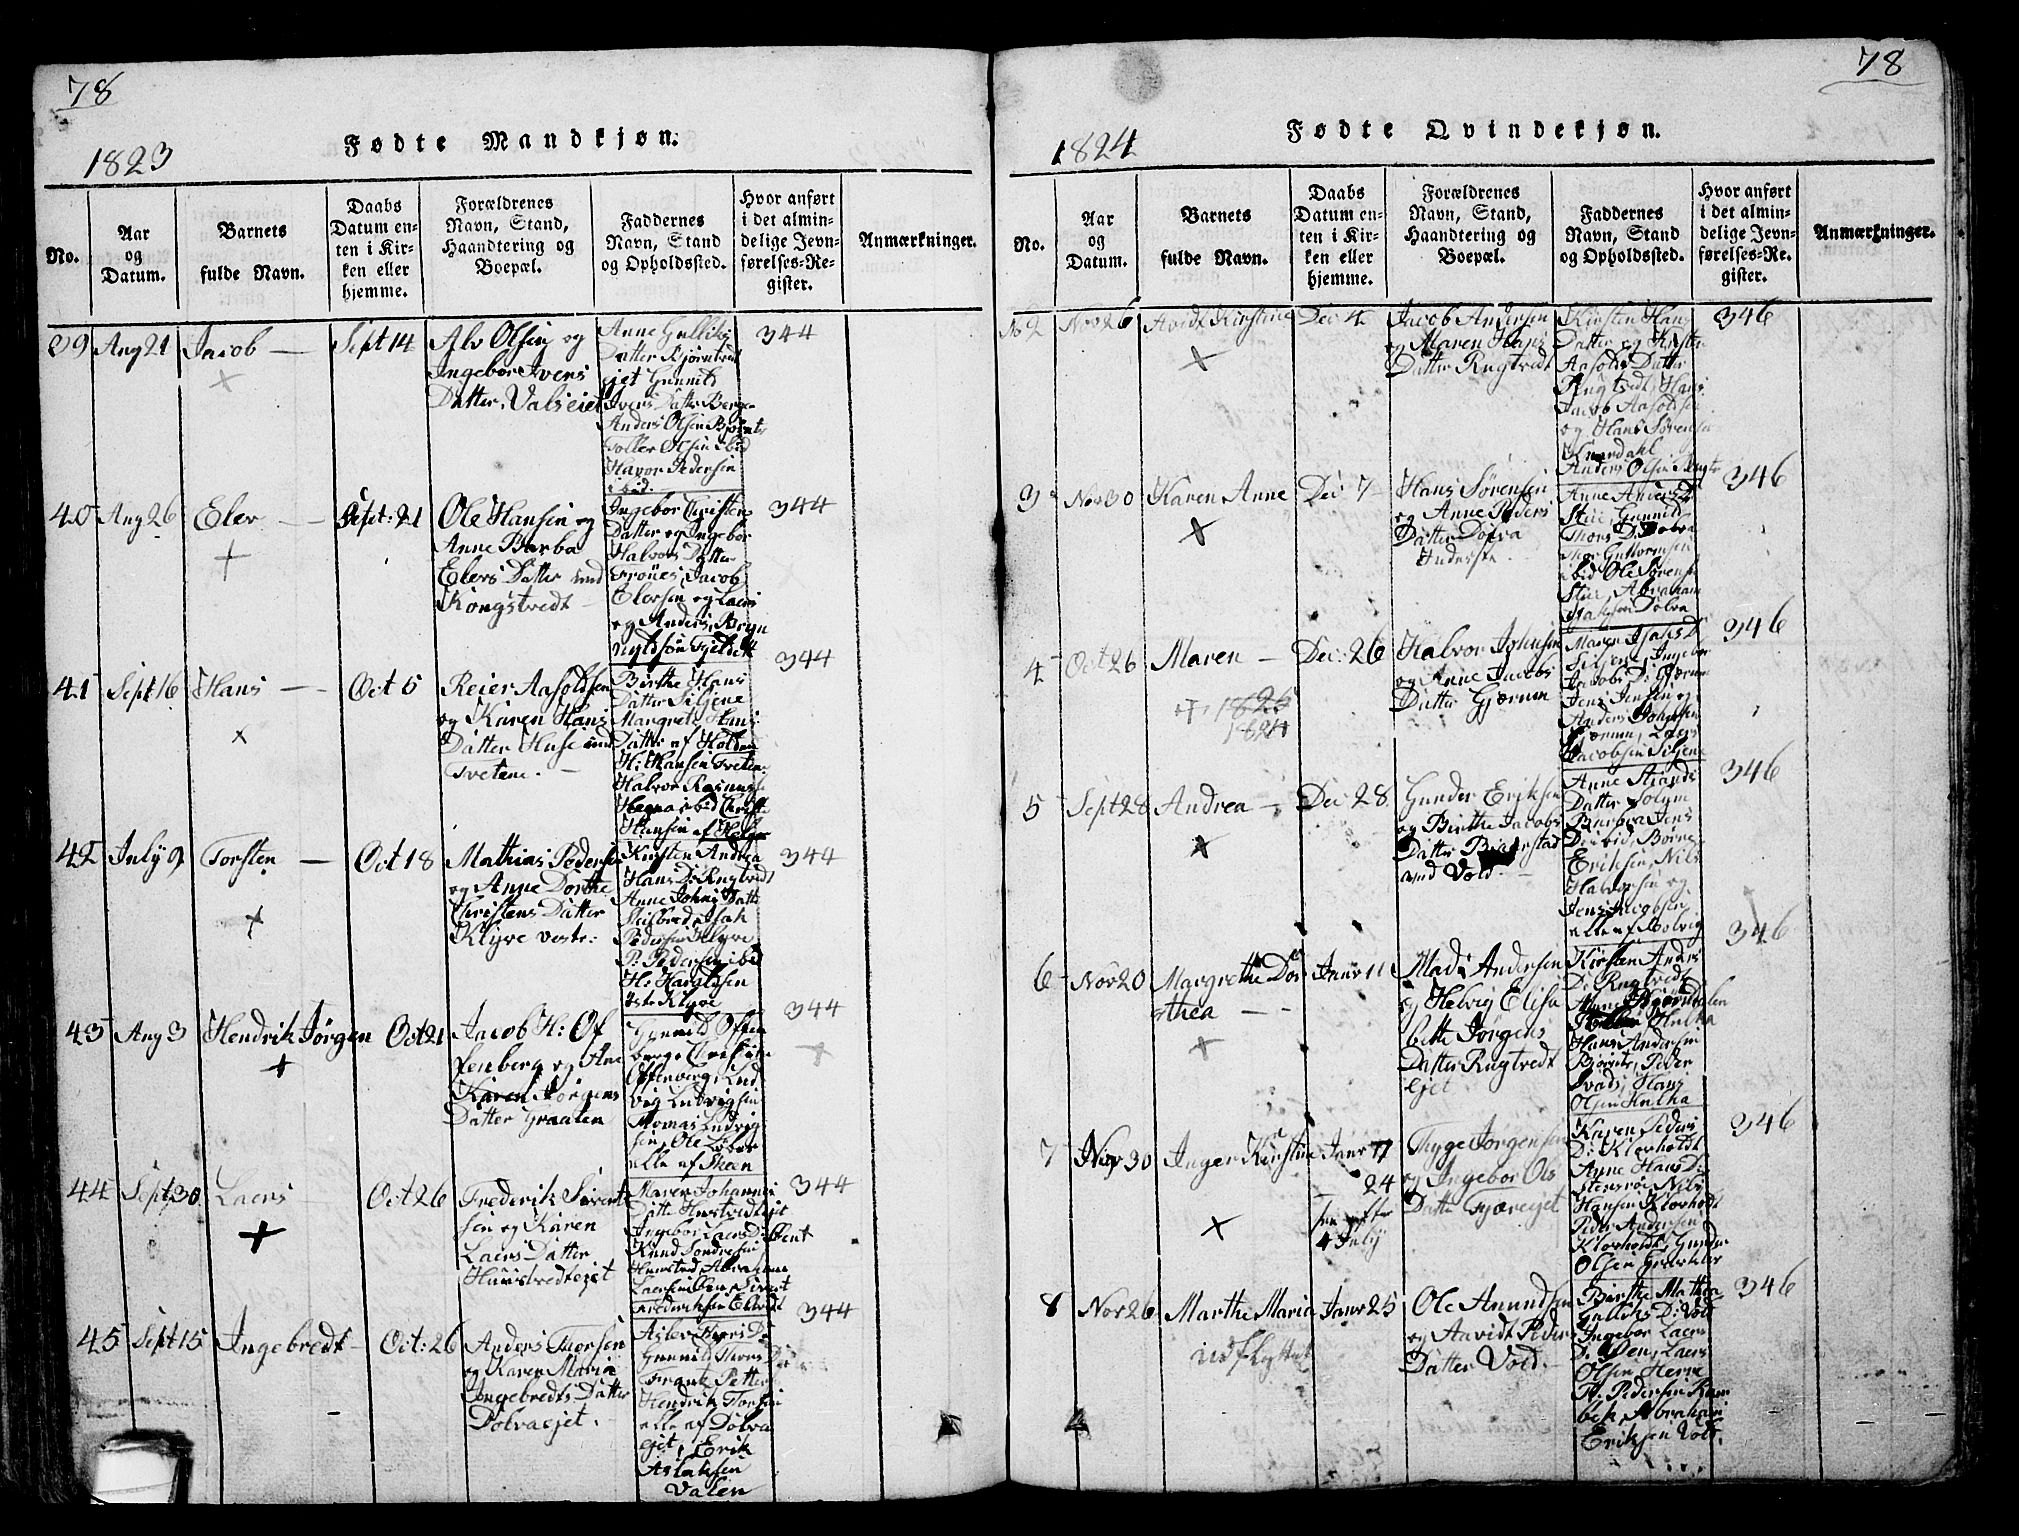 78
1823
Fødte Mandkjøn.
No.
Aar
og
Datum.
Barnets
fulde Navn.
Daabs
Datum en-
ten i Kir-
ken eller
hjemme.
Forældrenes
Navn, Stand,
Haandtering og
Boepæl.
Faddernes
Navn, Stand
og Opholdssted.
Hvor anført
i det almin-
delige Jevn-
førelses-Re-
gister.
Anmærkninger.
39 Aug 21 Jacob — Sept 14
Alv Olsen og
Ingebor Ivers
Datter, Valseiet
Anne Gulliks
Datter Bjørntvedt
ejet Gunnild
Ivers Datter Berge
Anders Olsen Bjørntv
Toller Olsen ibid
Havor Pedersen
ibid.
344
40 Aug 26 Elev — Sept: 21
Ole Hansen og
Anne Barba
Elers Datter ved
Kongstvedt
Ingebor Christens
Datter og Ingebor
Halvors Datter
Jacob
Elersen og Laers
og Anders Bryn
344
41 Sept 16 Hans — Oct 5
Reier Aasoldsen
og Karen Hans
Datter Huse ved
Tvetene.
Birthe Hans
Datter Siljene
Margrete Hans
Datter af Holden
H: Hansen Tveten
Halvor Rasmus
Hegna ibid Christ
Hansen af Holden
344
42 July 9 Torsten — Oct 18
Mathias Pedersen
og Anne Dorthe
Christens Datter
Klyve vestr:
Kirsten Andrea
Hans D: Rugtvedt
Anne Johns Datt
Isak
Pedersen Klyve
P: Pedersen ibid
H: Haraldsen
østr Klyve
344
43 Aug 3 Hendrik Jørgen Oct 21
Jacob H: Of
fenberg og Ane
Karen Jørgens
Datter Graaten
Gunnild Offen
berge
Offenberg, Lud
vig Ludvigsen
Thomas Ludvig
sen, Ole
elle af Skeen
344
44 Sept 30 Laers — Oct 26
Frederik Sivert
sen og Karen
Laers Datter
Hunstvedtejet
Maren Johannes
Datte Hunstvedtejet
Ingebor Laers D:
Knud Sondresen
Hunstved, Abraham
Laersen Sivert
Frederiksen
344
45 Sept 15 Ingebredt — Oct: 26
Anders Thorsen
og Karen Maria
Ingebredts Datter
Dølvaejet.
Aslov Thors D:
Gunnild Thors D:
Frank Petter
Hendrik Torsen
elle af Dølva
ejet, Erik
Aslaksen
Valen
344
78
1824
Fødte Qvindekjøn.
No.
Aar
og
Datum.
Barnets
fulde Navn.
Daabs
Datum en-
ten i Kir-
ken eller
hjemme.
Forældrenes
Navn, Stand,
Haandtering og
Boepæl.
Faddernes
Navn, Stand
og Opholdssted.
Hvor anført
i det almin-
delige Jevn-
førelses-Re-
gister.
Anmærkninger.
No 2 Nov 26 Avidt Kirstine Dec 4
Jacob Andersen
og Maren Hans
Datter Rugtvedt
Kirsten Hans
Datter og
Aasolds Datter
Rugtvedt, Hans
Jacob Aasoldsen
og Hans Sørensen
Knardahl
Anders Olsen
346
3 Nov 30 Karen Anne Dec 7
Hans Sørensen
og Anne Peders
Datter Dølva
Inderste
Anne Anders D
Stie, Gunnild
Thors D: Dølva
Thor Guttormsen
ibid Ole Sørensen
Stie, Abraham
Isaksen Dølva
346
4 Oct 26 Maren — Dec: 26
+ 1825
1824
Halvor Johnsen
og Anne Jacobs
Datter Gjærum
Maren Isaks D:
Siljene, Ingebor
Jacobs D: Gjærum
Jens Jensen og
Anders Johnsen
Gjærum, Laers
Jacobsen Siljene
346
5 Sept 28 Andrea — Dec 28
Gunder Eriksen
og Birthe Jacobs
Datter
ved Vold.
Anne
Datter Solum
Barbra Jens
D: ibid, Børge
Eriksen, Nils
Halvorsen og
Jens Jacobsen
elle af Bolvig
346
6 Nov 20 Margrethe Dor
thea Janr 11
Mads Andersen
og Helvig Elisa
beth Jørgens
Datter Rugtvedt
Ejet
Kirsten Anders
D: Rugtvedt
Hulka
Hans Andersen
Bjørntv, Peder
Ivads, Hans
Olsen Hulka
346
7 Nov 30 Inger Kirstine Janr 17
24
4 July
Thyge Jørgensen
og Ingebor Ols
Datte Tjæreejet
Karen Peders
D: Klovholdt
Anne Hans D:
Stensrøe Nils
Hansen Klovholdt
Peder Andersen
Klovholdt, Gunder
Olsen
346
8 Nov 26 Marthe Maria Janr 25
udflyttet
Ole Amundsen
og Aavidt Peders
Datter Vold.
Birthe Mathea
Gulliks D: Vold
Ingebor Laers
D: Laers
Olsen Herre
P. Pedersen Ram
bek, Abraham
Eriksen Vold.
346